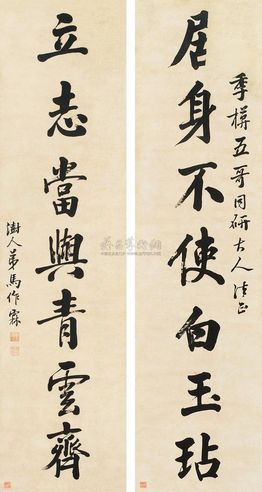 季模五哥同研大人法正
居身不使白玉玷
立志當與青雲齊
澍人弟馬作霖